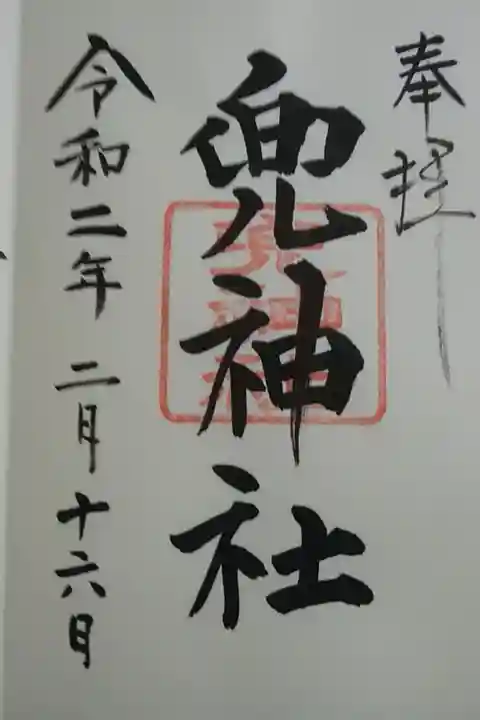 奉拝
兜神社
令和二年二月十六日